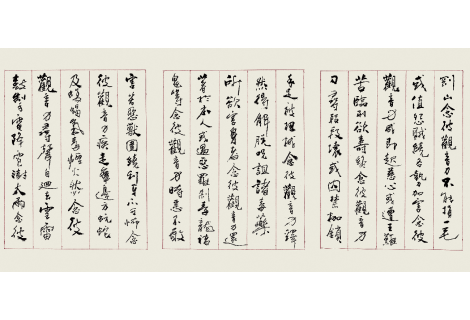 剛山念彼觀音力不能損一毛
或值怨賊繞各執刀加害念彼
觀音力咸即起慈心或遭王難
苦臨刑欲壽終念彼觀音力
刀尋段段壞或囚禁枷鎖
手足被杻械念彼觀音力釋
然得解脫呪詛諸毒藥
所欲害身者念彼觀音力還
著於本人或遇惡羅剎毒龍諸
鬼等念彼觀音力時悉不敢
害若惡獸圍繞利牙爪可怖念
彼觀音力疾走無邊方蚖蛇
及蝮蠍氣毒煙火然念彼
觀音力尋聲自迴去雲雷
鼓掣電降雹澍大雨念彼